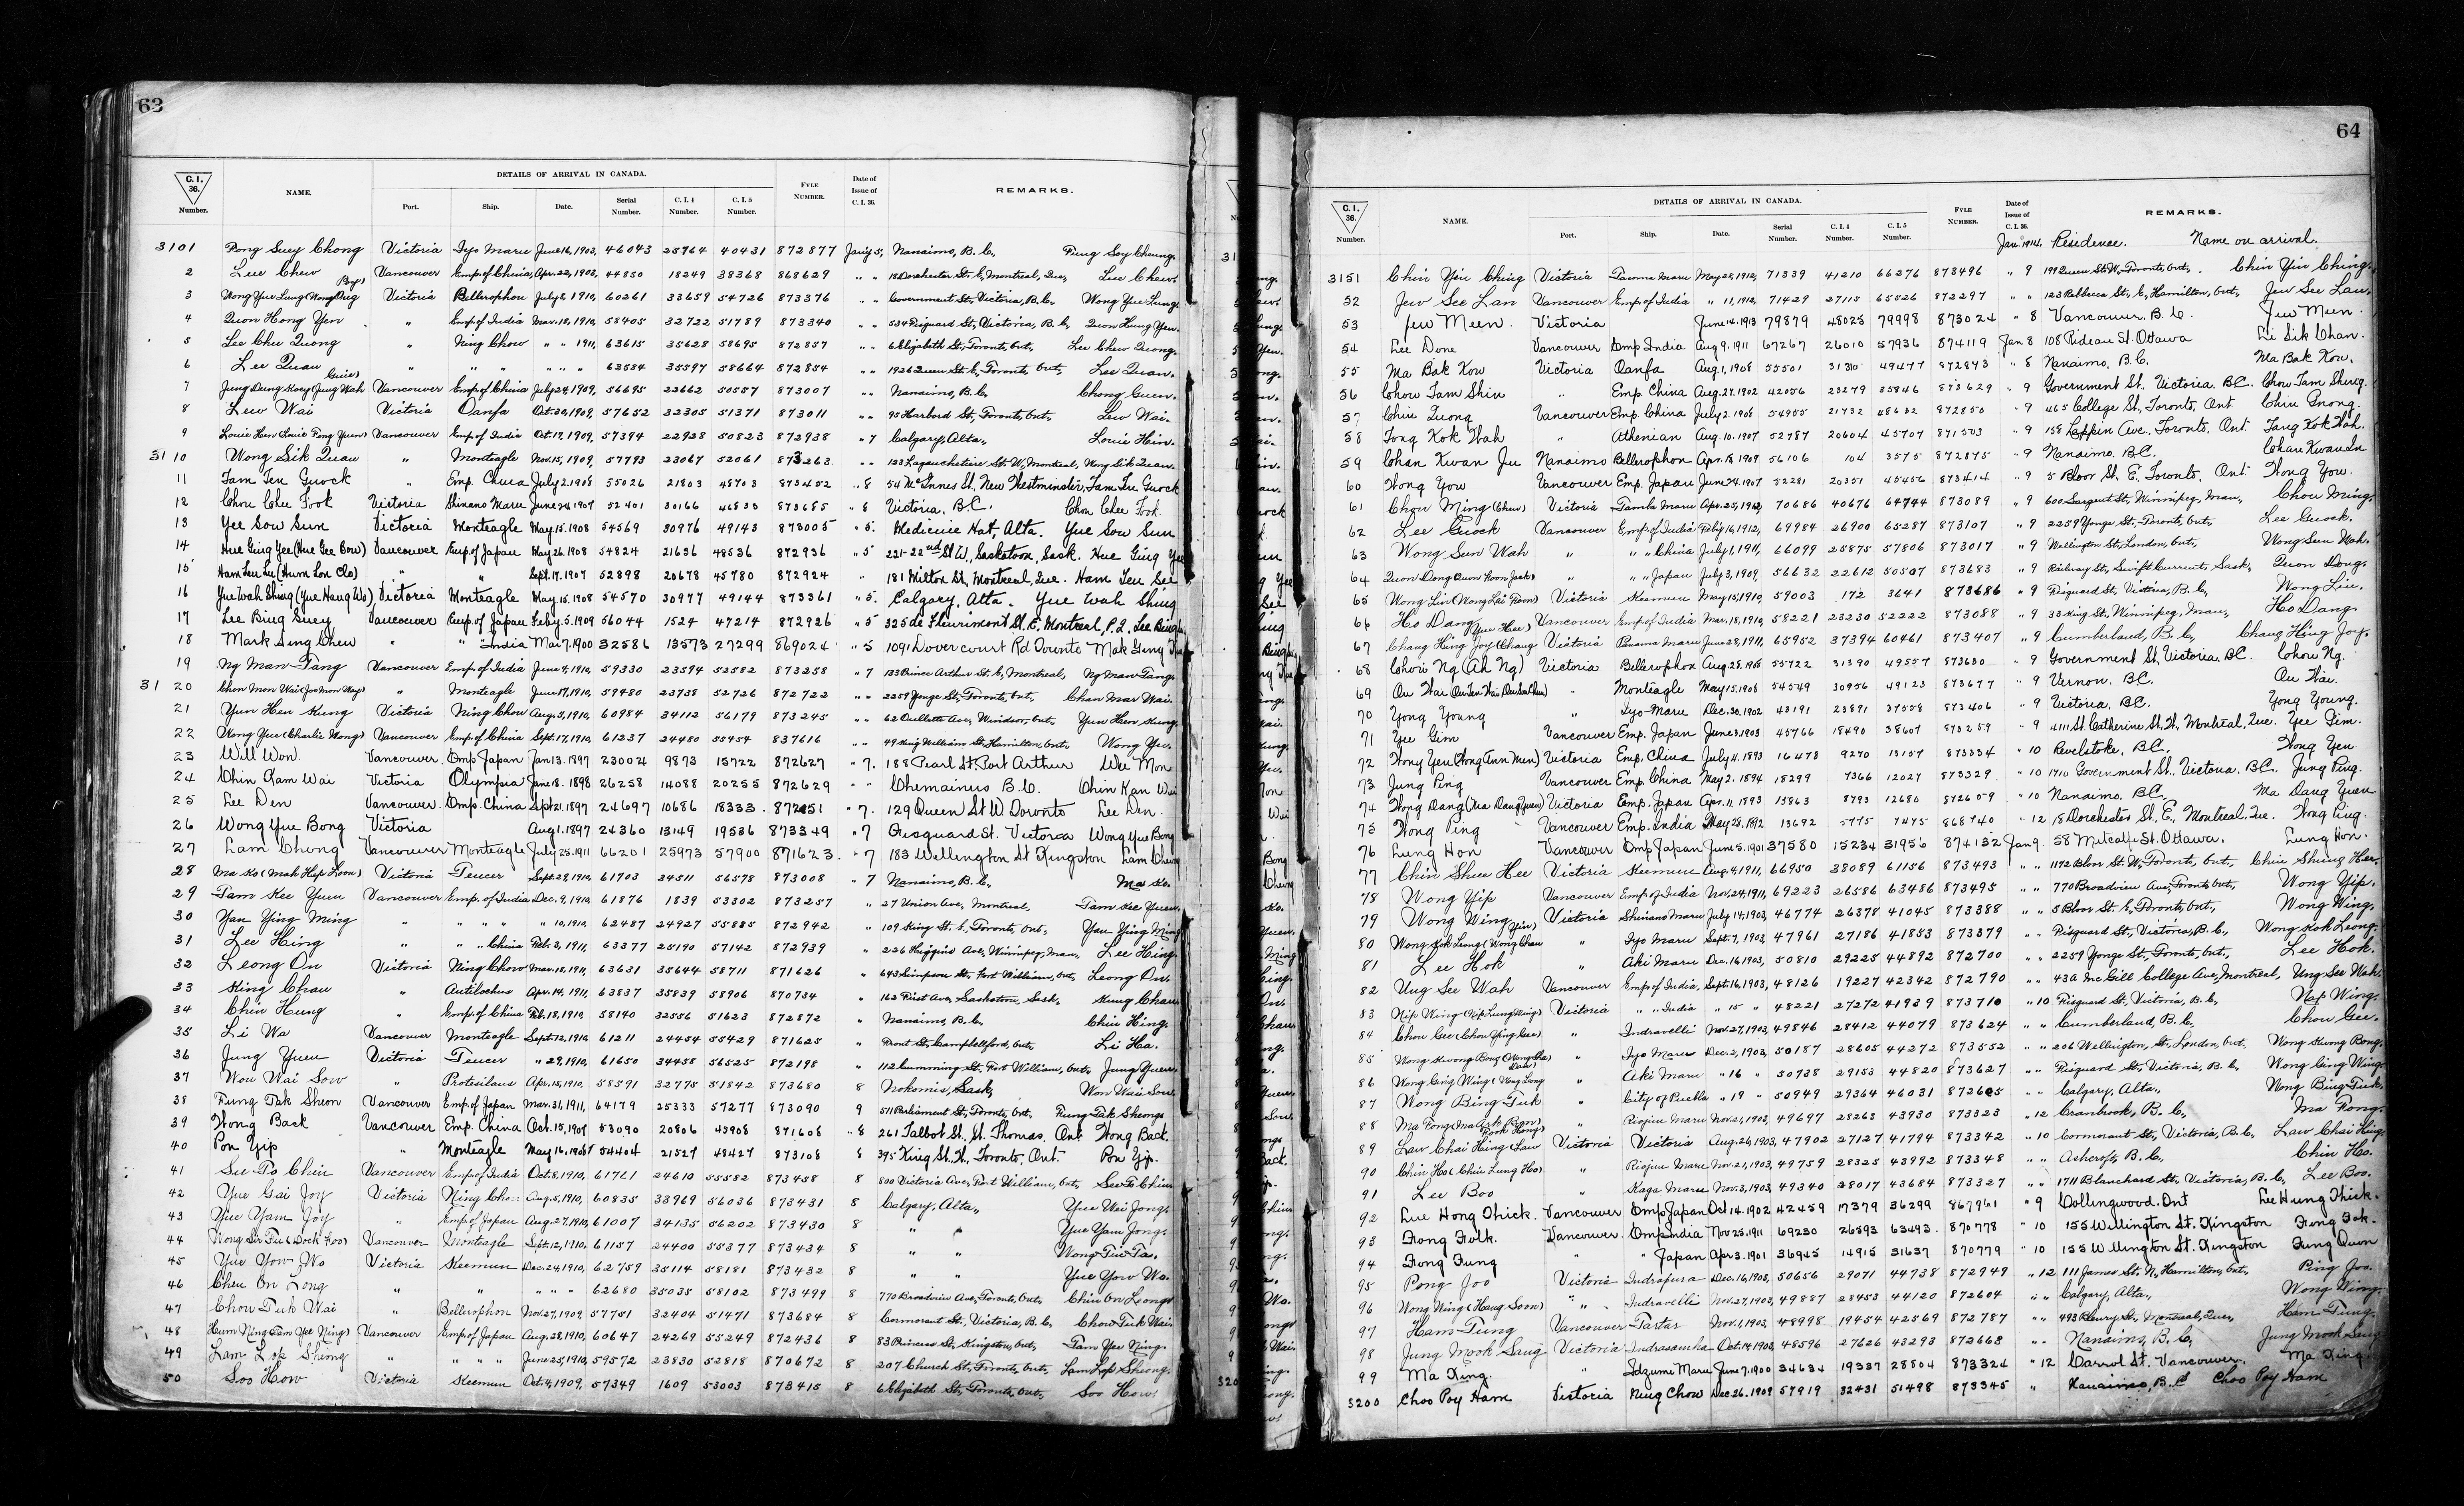 63
C. I. 36. Number. NAME. DETAILS OF ARRIVAL IN CANADA. Port. Ship. Date. Serial Number. C. I. 4 Number. C. I. 5 Number. FYLE NUMBER. Date of Issue of C. I. 36. REMARKS.
3101 Pong Suey Chong Victoria Iyo Maru June 16, 1903, 46043 25764 40431 872877 Jan'y 5, Nanaimo, B. C., Fung Soy Cheung.
2 Lee Chew Vancouver Emp. of China, Apr. 22, 1903, 44850 18249 38368 868629 " " 18 Dorchester St. E, Montreal, Que, Lee Chew.
3 Wong Yue Lung (Wong Ong Bing) Victoria Bellerophon July 8, 1910, 60261 33659 54726 873376 " " Government St., Victoria, B. C., Wong Yue Lung.
4 Quon Hong Yen " Emp. of India Mar. 18, 1910, 58405 32722 51789 873340 " " 534 Fisguard St., Victoria, B. C, Quon Hung Yen.
5 Lee Chu Quong " Ning Chow " " 1911, 63615 35628 58695 872857 " " 6 Elizabeth St., Toronto, Ont., Lee Chew Quong.
6 Lee Quan " " " " " " 63584 35597 58664 872854 " " 1926 Queen St. E, Toronto, Ont, Lee Quan.
7 Jung Dung Koey (Jung Wah Guin) Vancouver Emp. of China July 24, 1909, 56695 22662 50557 873007 " " Nanaimo, B. C, Chong Guen.
8 Lew Wai Victoria Oanfa Oct. 30, 1909, 57652 32305 51371 873011 " " 95 Harbord St, Toronto, Ont., Lew Wai.
9 Louie Hen (Louie Fong Yuen) Vancouver Emp. of India Oct. 17, 1909, 57394 22928 50823 872938 " 7 Calgary, Alta., Louie Hin.
3110 Wong Sik Quan " Monteagle Nov. 15, 1909, 57793 23067 52061 873263 " " 123 Lagauchetiere St. W, Montreal, Wong Sik Quan.
11 Tam Ten Guock " Emp. China July 2, 1908 55026 21803 48703 873452 " 8 54 McInnes St., New Westminster, Tam Ten Guock
12 Chou Chee Fook Victoria Shinano Maru June 24, 1907 52401 30166 46833 873685 " 8 Victoria, B.C. Chou Chee Fook
13 Yee Sow Sun Victoria Monteagle May 15, 1908 54569 30976 49143 873005 " 5. Medicine Hat, Alta. Yue Sow Sun
14 Hue Ging Yee (Hue Gee Bow) Vancouver Emp. of Japan May 26, 1908 54824 21636 48536 872936 " 5 221-22nd St. W., Saskatoon, Sask. Hue Ging Yee
15 Ham Leu Su (Hum Lon Clo) " " Sept. 17, 1907 52898 20678 45780 872924 " 181 Milton St., Montreal, Que. Ham Teu See
16 Yue Wah Shing (Yue Hang Wo) Victoria Monteagle May 15, 1908 54570 30977 49144 873361 " 5. Calgary, Alta. Yue Wah Shing
17 Lee Bing Suey Vancouver Emp. of Japan Feb'y. 5, 1909 56044 1524 47214 872926 " 5 325 de Fleurimont St. E, Montreal, P.Q. Lee Bing
18 Mark Seng Chew " " India Mar 7, 1900 32586 13573 27299 869024 " 5 1091 Dovercourt Rd Toronto Mak Seng
19 Ng Man Tang Vancouver Emp. of India June 9, 1910, 59330 23594 52582 873258 " 7 133 Prince Arthur St. E, Montreal, Ng Man Tang.
3120 Chon Mon Wai (Joe Mon Way) " Monteagle June 17, 1910, 59480 23738 52726 872722 " " 2259 Yonge St., Toronto, Ont, Chan Mar Wai.
21 Yun Hen Kung Victoria Ning Chow Aug. 3, 1910, 60984 34112 56179 873245 " " 62 Oullette Ave, Windsor, Ont., Yun Hen Kung.
22 Wong Yue (Charlie Wong) Vancouver Emp. of China Sept. 17, 1910, 61237 24480 55454 837616 " " 49 King William St. Hamilton, Ont., Wong Yu.
23 Will Won. Vancouver. Emp Japan Jan 13. 1897 23002 9873 15722 872627 " 7. 188 Pearl St. Port Arthur Wee Mon
24 Chin Kam Wai Victoria Olympia June 18. 1898 26258 14088 20255 872629 " " Chemainus B. C. Chin Kan Wai
25 Lee Den Vancouver. Emp. China Sept 21. 1897 24697 10686 18333. 872851 " 7. 129 Queen St W. Toronto Lee Den.
26 Wong Yue Bong Victoria Aug 1. 1897 24360 13149 19536 873349 " 7 Fisguard St. Victoria Wong Yue Bong
27 Lam Chong Vancouver Monteagle July 25. 1911 66201 25973 57900 871623. " 7 183 Wellington St Kingston Lam Chong
28 Ma Ko (Mah Hap Loon) Victoria Teucer Sept. 29, 1910, 61703 34511 56578 873008 " 7 Nanaimo, B. C., Ma Ko.
29 Tam Kee Yuen Vancouver Emp. of India Dec. 9, 1910 61876 1839 53302 873257 " 27 Union Ave, Montreal, Tam Kee Yuen.
30 Yan Ying Ming " " " " " 10, 1910, 62487 24927 55885 872942 " 109 King St. E, Toronto, Ont., Yan Ying Ming
31 Lee Hing " " " China Feb. 3, 1911, 63377 25190 57142 872939 " 226 Higgins Ave, Winnipeg, Man., Lee Hing.
32 Leong On Victoria Ning Chow Mar. 18, 1911, 63631 35644 58711 871626 " 643 Simpson St., Fort William, Ont, Leong On.
33 King Chau " Antilochus Apr. 14, 1911, 63837 35839 58906 870734 " 162 First Ave, Saskatoon, Sask. Kung Chau
34 Chin Hung " Emp. of China Feb. 18, 1910, 58140 32556 51623 872872 " Nanaimo, B. C., Chin Hing.
35 Li Wa Vancouver Monteagle Sept. 12, 1910, 61211 24454 55429 871625 " Front St., Campbellford, Ont., Li Ha.
36 Jung Yuen Victoria Teucer " 29, 1910, 61650 34458 56525 872198 " 112 Cumming St. Fort William, Ont, Jung Yuen
37 Wou Wai Sow " Protesilaus Apr. 15, 1910, 58591 32775 51842 873680 8 Nokomis, Sask, Won Wai Sow.
38 Fung Tak Sheon Vancouver Emp. of Japan Mar. 31, 1911, 64179 25333 57277 873090 9 511 Parliament St., Toronto, Ont, Fung Tak Sheong
39 Hong Back Vancouver Emp. China Oct. 15, 1907 53090 20806 45908 871606 " 8 261 Talbot St. St. Thomas. Ont Hong Back.
40 Pon Yip " Monteagle May 16, 1908 54404 21527 48427 873108 8 395 King St. W., Toronto, Ont. Pon Yip.
41 See To Chin Vancouver Emp. of India Oct. 8, 1910, 61721 24610 55582 873458 8 800 Victoria Ave, Fort William, Ont, See To Chin
42 Yue Gai Joy Victoria Ning Chow Aug. 5, 1910, 60835 33969 56036 873431 8 Calgary, Alta., Yue Wai Jong.
43 Yue Yam Joy " Emp. of Japan Aug. 27, 1910, 61007 34135 56202 873430 8 " " Yue Yam Jong.
44 Wong Sir Fie (Dock Foo) Vancouver Monteagle Sept. 12, 1910, 61157 24400 55377 873434 8 " " Wong Tue Ta.
45 Yue Yow Wo Victoria Keemun Dec. 24, 1910, 62759 35114 58181 873432 8 " " Yue Yow Wo.
46 Cheu On Long " " " " " 62680 35035 58102 873499 8 770 Broadview Ave, Toronto, Ont, Chin On Leong
47 Chou Tuk Wai " Bellerophon Nov. 27, 1909, 57751 32404 51471 873684 8 Cormorant St., Victoria, B. C, Chow Tuk Wai
48 Hum Ning (Tam Yee Ning) Vancouver Emp. of Japan Aug. 28, 1910, 60647 24269 55249 872436 8 83 Princess St., Kingston, Ont, Tam Yee Ning.
49 Lam Lop Sheong " " " " June 25, 1910, 59572 23830 52818 870672 8 207 Church St., Toronto, Ont, Lam Lop Sheong.
50 Soo How Victoria Keemun Oct. 4, 1909, 57349 1609 53003 873415 8 6 Elizabeth St., Toronto, Ont, Soo How.
64
C. I. 36. Number. NAME. DETAILS OF ARRIVAL IN CANADA. Port. Ship. Date. Serial Number. C. I. 4 Number. C. I. 5 Number. FYLE NUMBER. Date of Issue of C. I. 36. REMARKS.
Jan. 1914, Residence. Name on arrival.
3151 Chin Yin Ching Victoria Tacoma Maru May 28, 1912, 71339 41210 66276 873496 " 9 199 Queen St. W., Toronto, Ont, Chin Yin Ching.
52 Jew See Lan Vancouver Emp. of India " 11, 1912, 71429 27115 65526 872297 " " 123 Rebbeca St., E, Hamilton, Ont, Jew See Lau.
53 Jew Meen. Victoria June 14. 1913 79879 48025 79998 873024 " 8 Vancouver. B. C. Jew Mun.
54 Lee Done Vancouver Emp India Aug 9. 1911 67267 26010 57936 874119 Jan 8 108 Rideau St. Ottawa Li Sik Chan.
55 Ma Bak Kow Victoria Oanfa Aug. 1, 1908 55501 31310 49477 872873 " 8 Nanaimo, B.C. Ma Bak Kow.
56 Chow Tam Shin " Emp. China Aug. 27. 1902 42056 23279 35846 873629 " 9 Government St, Victoria. BC. Chow Tam Sheng.
57 Chiu Leong Vancouver Emp. China July 2. 1908 54955 21732 48632 872850 " 9 465 College St., Toronto, Ont Chiu Gnong.
58 Tong Kok Wah " Athenian Aug. 10. 1907 52787 20604 45707 871503 " 9 158 Lappin Ave, Toronto, Ont. Tang Kok Wah.
59 Chan Kwan Ju Nanaimo Bellerophon Apr. 18, 1909 56106 104 3575 872875 " 9 Nanaimo, B.C. Chan Kwan Su
60 Wong Yow Vancouver Emp. Japan June 24. 1907 52281 20351 45456 873414 " 9 5 Bloor St. E. Toronto, Ont Wong Yow.
61 Chou Ming (Chew) Victoria Tamba Maru Apr. 25, 1912, 70686 40676 64744 873089 " 9 600 Sargent St., Winnipeg, Man, Chou Ming.
62 Lee Guock Vancouver Emp. of India Feb'y 16, 1912, 69984 26900 65287 873107 " 9 2259 Yonge St., Toronto, Ont, Lee Guock.
63 Wong Sun Wah " " " China July 1, 1911, 66099 25875 57806 873017 " 9 Wellington St., London, Ont, Wong Sun Wah.
64 Quon Dong (Quon Foon Jack) " " " Japan July 3, 1909, 56632 22612 50507 873683 " 9 Railway St., Swift Current, Sask, Quon Dong.
65 Wong Lin (Wong Lai Foon) Victoria Keemun May 15, 1910, 59003 172 3641 873686 " 9 Fisguard St., Victoria, B. C., Wong Liu.
66 Ho Dang Vancouver Emp. of India Mar. 18, 1910, 58221 23230 52222 873088 " 9 33 King St., Winnipeg, Man, Ho Dang
67 Chang Hing Joy (Chang Yue Hee) Victoria Panama Maru June 28, 1911, 65952 37394 60461 873407 " 9 Cumberland, B. C, Chang Hing Joy.
68 Choie Ng (Ah Ng) Victoria Bellerophon Aug. 28. 1908 55722 31390 49557 873630 " 9 Government St, Victoria. BC. Chou Ng.
69 Ou Wai " Monteagle May 15. 1908 54549 30956 49123 873677 " 9 Vernon. BC. Ou Wai.
70 Yong Young " Iyo Maru Dec. 30. 1902 43191 23891 37558 873406 " 9 Victoria, BC. Yong Young.
71 Yee Gim Vancouver Emp. Japan June 3. 1903 45766 18490 38607 873259 " 9 4111 St. Catherine St. W, Montreal, Que. Yee Jim.
72 Wong Yen (Wong Ann Mun) Victoria Emp. China July 4. 1893 16478 9270 13157 873334 " 10 Revelstoke, B.C. Wong Yen
73 Jung Ping Vancouver Emp. China May 2. 1894 18299 7366 12027 873329 " 10 1710 Government St., Victoria. BC. Jung Ping.
74 Wong Dang (Ma Dang Yuen) Victoria Emp. Japan Apr. 11, 1893 15863 8793 12680 872609 " 10 Nanaimo. BC. Ma Dang Yuen
75 Wong Ping Vancouver Emp. India May 25. 1892 13692 5775 7475 868740 " 12 18 Dorchester St., E, Montreal, Que. Wong Ping.
76 Lung Hon Vancouver Emp Japan June 5. 1901 37580 15234 31956 874132 Jan 9. 58 Metcalfe St. Ottawa. Lung Hon.
77 Chin Shue Hee Victoria Keemun Aug. 4, 1911, 66950 38089 61156 873493 " " 1172 Bloor St. W, Toronto, Ont, Chin Shung Hee.
78 Wong Yip Vancouver Emp. of India Nov. 24, 1911, 69223 26586 63486 873495 " " 770 Broadview Ave, Toronto, Ont, Wong Yip.
79 Wong Wing Victoria Shinano Maru July 14, 1903, 46774 26378 41045 873388 " " 5 Bloor St. E, Toronto, Ont., Wong Wing.
80 Wong Kok Leong (Wong Chau Yin) " Iyo Maru Sept. 7, 1903, 47961 27186 41853 873379 " " Fisguard St., Victoria, B. C, Wong Kok Leong.
81 Lee Hok " Aki Maru Dec. 16, 1903, 50810 29225 44892 872700 " " 2259 Yonge St., Toronto, Ont., Lee Hok.
82 Ung See Wah Vancouver Emp. of India, Sept. 16, 1903, 48126 19227 42342 872790 " " 43A McGill College Ave, Montreal, Ung See Wah.
83 Nip Wing (Nip Lung Ming) Victoria " " India " 15 " 48221 27272 41939 873710 " 10 Fisguard St., Victoria, B. C, Nap Wing.
84 Chou Gee (Chou Ying Gee) " Indravelli Nov. 27, 1903, 49846 28412 44079 873624 " " Cumberland, B. C, Chou Gee.
85 Wong Kwong Bong " Iyo Maru Dec. 2, 1903, 50187 28605 44272 873552 " " 206 Wellington, St. London, Ont. Wong Kwong Bong.
86 Wong Ging Wing " Aki Maru " 16 " 50738 29153 44820 873627 " " Fisguard St., Victoria, B. C, Wong Ging Wing.
87 Wong Bing Tuk " City of Puebla " 19 " 50949 29364 46031 872605 " " Calgary, Alta., Wong Bing Tuk.
88 Ma Pong " Riojun Maru Nov. 21, 1903, 49697 28263 43930 873323 " 12 Cranbrook, B. C, Ma Pong.
89 Law Chai Hing (Law Fook Hong) Victoria Victoria Aug. 26, 1903, 47902 27127 41794 873342 " 10 Cormorant St., Victoria, B. C, Law Chai Hing
90 Chin Ho (Chin Lung Ho) " Riojun Maru Nov. 21, 1903, 49759 28325 43992 873348 " " Ashcroft, B. C, Chin Ho.
91 Lee Boo " Kaga Maru Nov. 3, 1903, 49340 28017 43684 873327 " " 1711 Blanchard St., Victoria, B. C, Lee Boo.
92 Lue Hong Thick. Vancouver Emp Japan Oct 14. 1902 42459 17379 36299 867961 " 9 Collingwood. Ont Lee Hung Thick.
93 Fong Fook. Vancouver. Emp India Nov 25. 1911 69230 26593 63493. 870778 " 10 155 Wellington St. Kingston Fung Fok.
94 Fong Fung " " Japan Apr 3. 1901 36945 14915 31637 870779 " 10 155 Wellington St. Kingston Fung Quon
95 Pong Joo Victoria Indrapura Dec. 16, 1903, 50656 29071 44738 872949 " 12 111 James St. N, Hamilton, Ont, Ping Joo.
96 Wong Wing (Hang Soon) " Indravelli Nov. 27, 1903, 49887 28453 44120 872604 " " Calgary, Alta., Wong Wing.
97 Ham Tung Vancouver Tartar Nov. 1, 1903, 48998 19454 42569 872787 " " 493 Bleury St., Montreal, Que, Ham Tung.
98 Jung Mook Sang Victoria Indrasamha Oct. 14, 1903, 48596 27626 43293 872668 " " Nanaimo, B. C, Jung Mook Sang
99 Ma King. " Idzumi Maru June 7, 1900 34634 19337 28804 873324 " 12 Carrol St. Vancouver. Ma King.
3200 Choo Poy Ham Victoria Ning Chow Dec. 26. 1909 57919 32431 51498 873345 " Nanaimo, B.C Choo Poy Ham